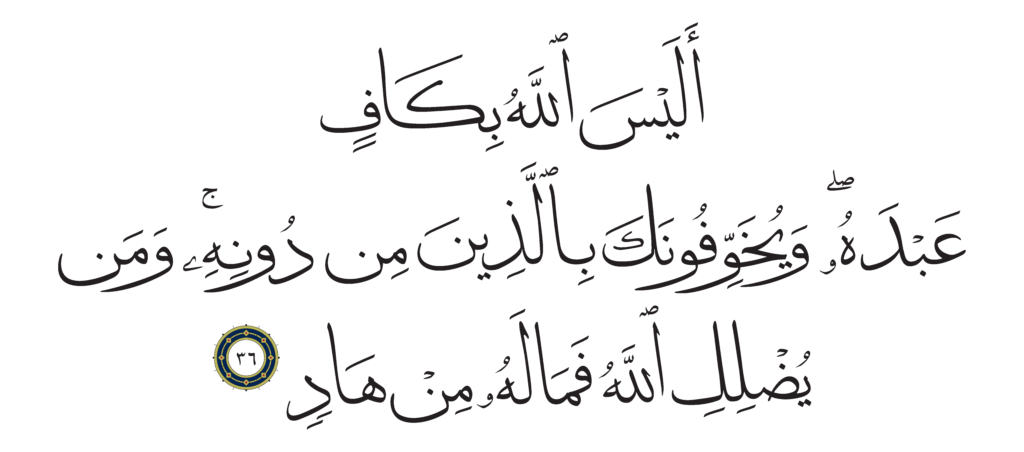 أَلَيْسَ ٱللَّهُ بِكَافٍ
عَبْدَهُۥۖ وَيُخَوِّفُونَكَ بِٱلَّذِينَ مِن دُونِهِۦۚ وَمَن
يُضْلِلِ ٱللَّهُ فَمَا لَهُۥ مِنْ هَادٍ ٣٦